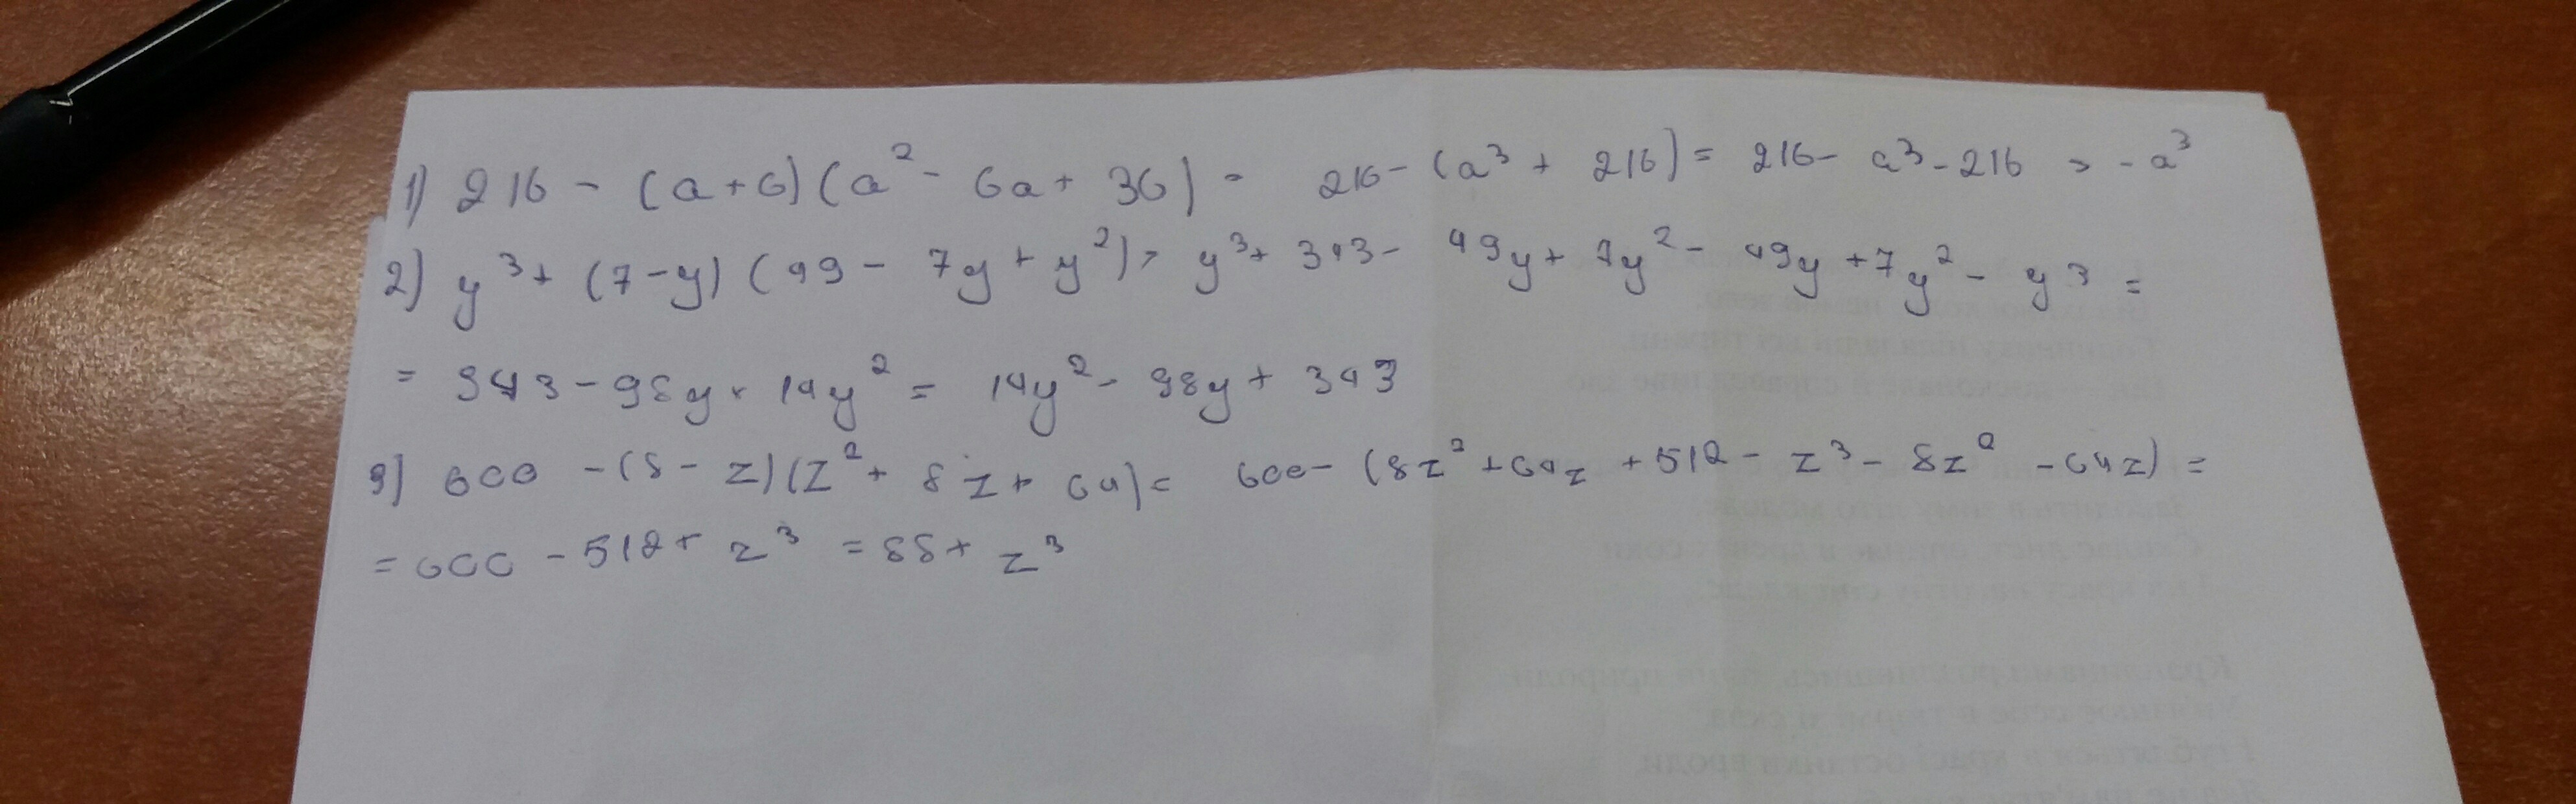 1) 216 - (a+6)(a² - 6a + 36) = 216 - (a³ + 216) = 216 - a³ - 216 = -a³
2) y³ + (7-y)(49 - 7y + y²) = y³ + 343 - 49y + 7y² - 49y + 7y² - y³ =
= 343 - 98y + 14y² = 14y² - 98y + 343
3) 600 - (8 - z)(z² + 8z + 64) = 600 - (8z² + 64z + 512 - z³ - 8z² - 64z) =
= 600 - 512 + z³ = 88 + z³